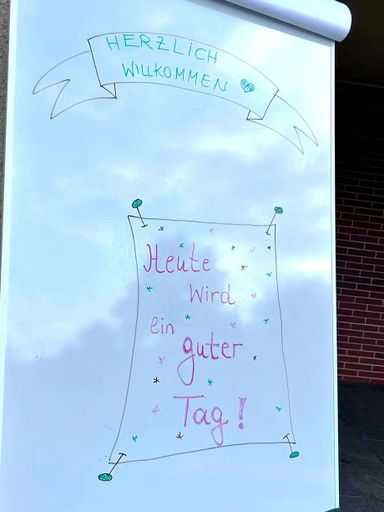 HERZLICH
WILLKOMMEN
Heute
wird
ein
guter
Tag!